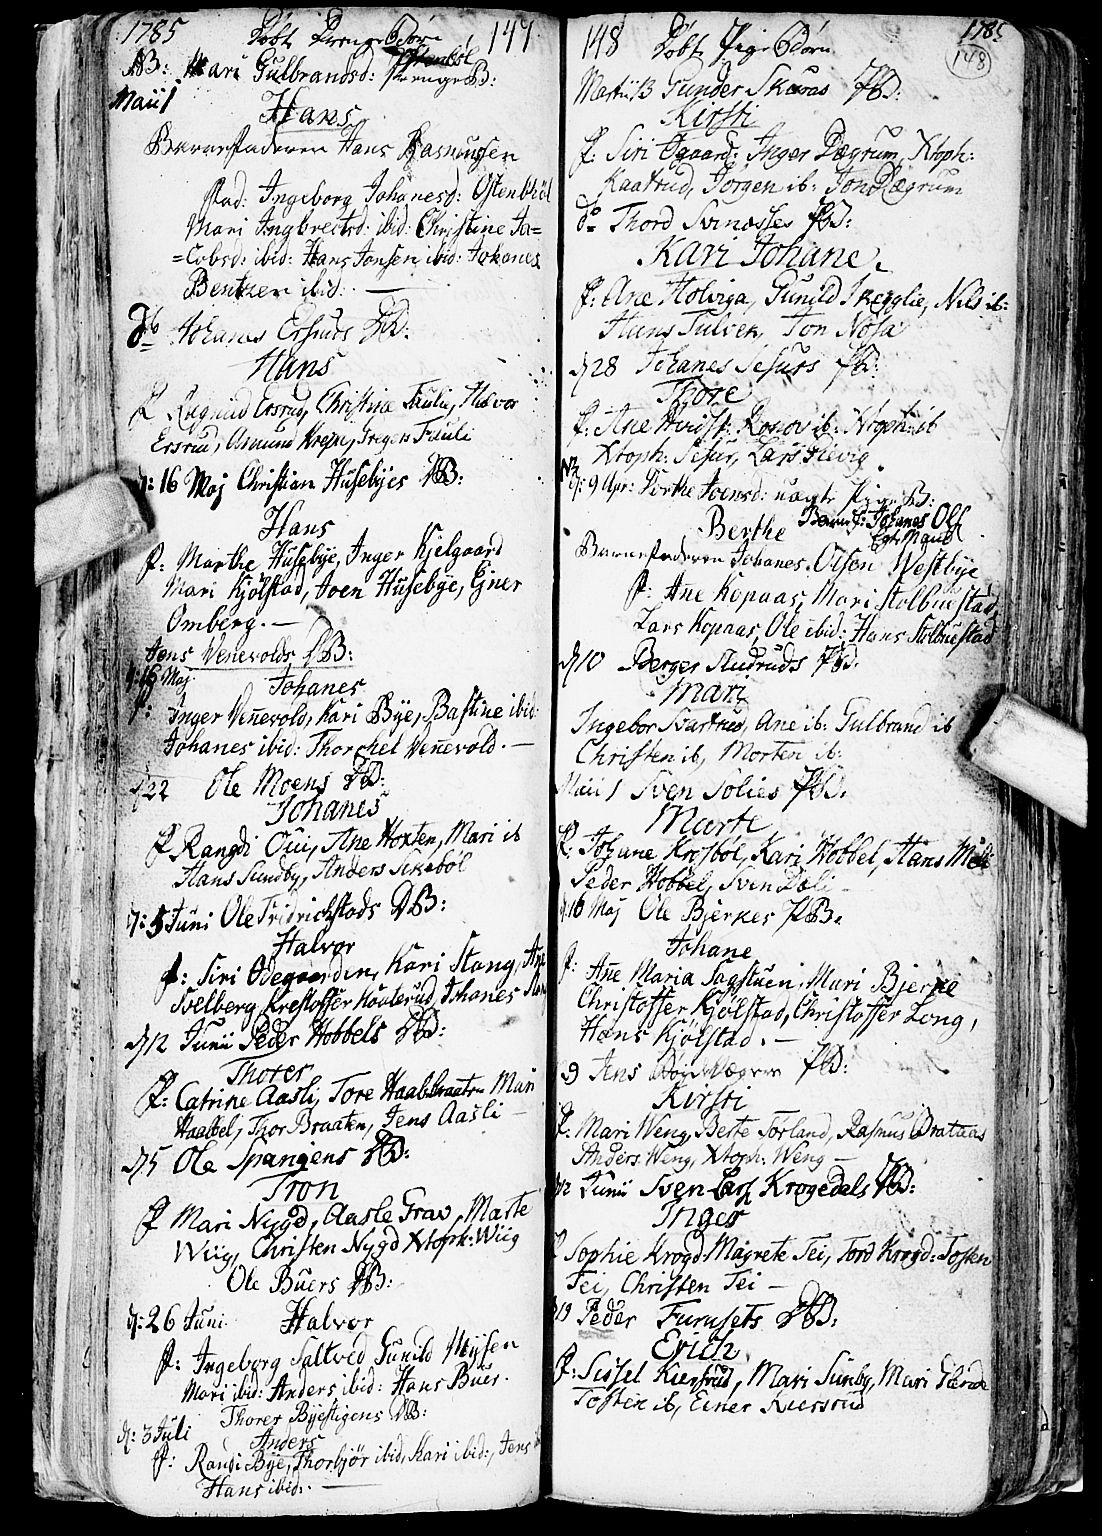 1785 Døbt Drenge Børn 147
NB: Mari Gulbrandsd: Østenbøl Drenge B:
Maii 1
Hans
Barnefaderen Hans Rasmussen
fad: Ingeborg Johanesd: Østenbhøl
Mari Ingbrectsd: ibid: Christine Ja=
=cobsd: ibid: Hans Jonsen ibid: Johanes
Bentzen ibid: —
Johanes Ersruds DB:
Hans
f: Ragnild Ersrud, Christine Fauli, Halvor
Ersrud, Amund Krepi, Gregers Fauli
d: 16 Maj Christian Husebyes DB:
Hans
f: Marthe Husebye, Inger Kjelgaard
Mari Kjølstad, Joen Husebye, Ejner
Omberg. —
Jens Venevolds DB:
d: 16 Maj
Johanes
f: Inger Venevold, Kari Bye, Bastine ibid:
Johanes ibid: Thorchel Venevold. —
d 22 Ole Moens DB:
Johanes
f Rangdi Oui, Ane Hoxten, Mari ib
Hans Sundby, Anders Sikebøl
d: 5 Juni Ole Fridrichstads DB:
Halvor
f: Siri Ødegaarden, Kari Stang, Ane
Svelberg, Krestoffer Kaaterud, Johanes Stang
d 12 Junii Peder Hobbels DB:
Thorer
f: Catrine Aasli, Tore Haabbraaten Mari
Haabbel, Thor Braaten, Jens Aasli —
d 5 Ole Spangens DB:
Tron
f Mari Nygd, Aasle Grav, Marte
Wiig, Christen Nygd Xtoph: Wiig
Ole Buers DB:
d: 26 Juni Halvor
f: Ingeborg Saltved, Gunild Mysen
Mari ibid: Anders ibid: Hans Buer.
Thorer Byestigens DB:
d: 3 Juli
Anders
f: Randi Bye, Thorbjør ibid, Kari ibid:, Jens
Hans ibid: —
148 Døbt Pige Børn 1785
148
Martii 13 Gunder Skaras PB:
Kirsti
f: Siri Øgaard: Inger Dægrum, Xtoph:
Kaatrud, Jørgen ib: Jon Dægrum
do Thord Svinæsses PB:
Kari Johane
f: Ane Holviga, Gunild Skegglie, Nils ib:
Hans Tulven, Jon Nosa
d 28 Johanes Sesurs PB:
Thore
f: Ane Ronov ib: Xtoph: ib
Xtoph: Sesur, Lars Hevig
NB
d: 9 Apr: Dorthe Joensd: uægte Pige B:
Berthe Barnef: Johanes Ols
Egte Mand
Barnefaderen Johanes Olsen Westbye
f: Ane Kopaas, Mari Stolbuestad,
Lars Kopaas, Ole ibid: Hans Stolbuestad
d 10 Berger Rudruds PB:
Mari
Ingebor Svartrud, Ane ib: Gulbrand ib
Christen ib, Morten ib:
Maii 1 Sven Solies PB.
Marte
f: Johane Krosbøl, Kari Hobbel, Hans
Peder Hobbel, Sven Dæli —
d: 16 Maj Ole Bjerkes PB.
Johane
f: Ane Maria Sagstuen, Mari Bjerke
Christoffer Kjølstad, Christoffer Long,
Hans Kjølstad. —
Jens PB:
Kirsti
f: Mari Weng, Berte Torland, Rasmus Brataas
Anders Weng, Xtoph: Weng —
12 Junii Sven Krogedals PB:
Inger
f Sophie Krogd: Magrete Tei, Tord Krogd: Tosten
Tei, Christen Tei —
d 19 Peder Furusets DB:
Erich
f: Sissel Kiersrud, Mari Sunby, Mari
Tosten ib, Einer Kiersrud